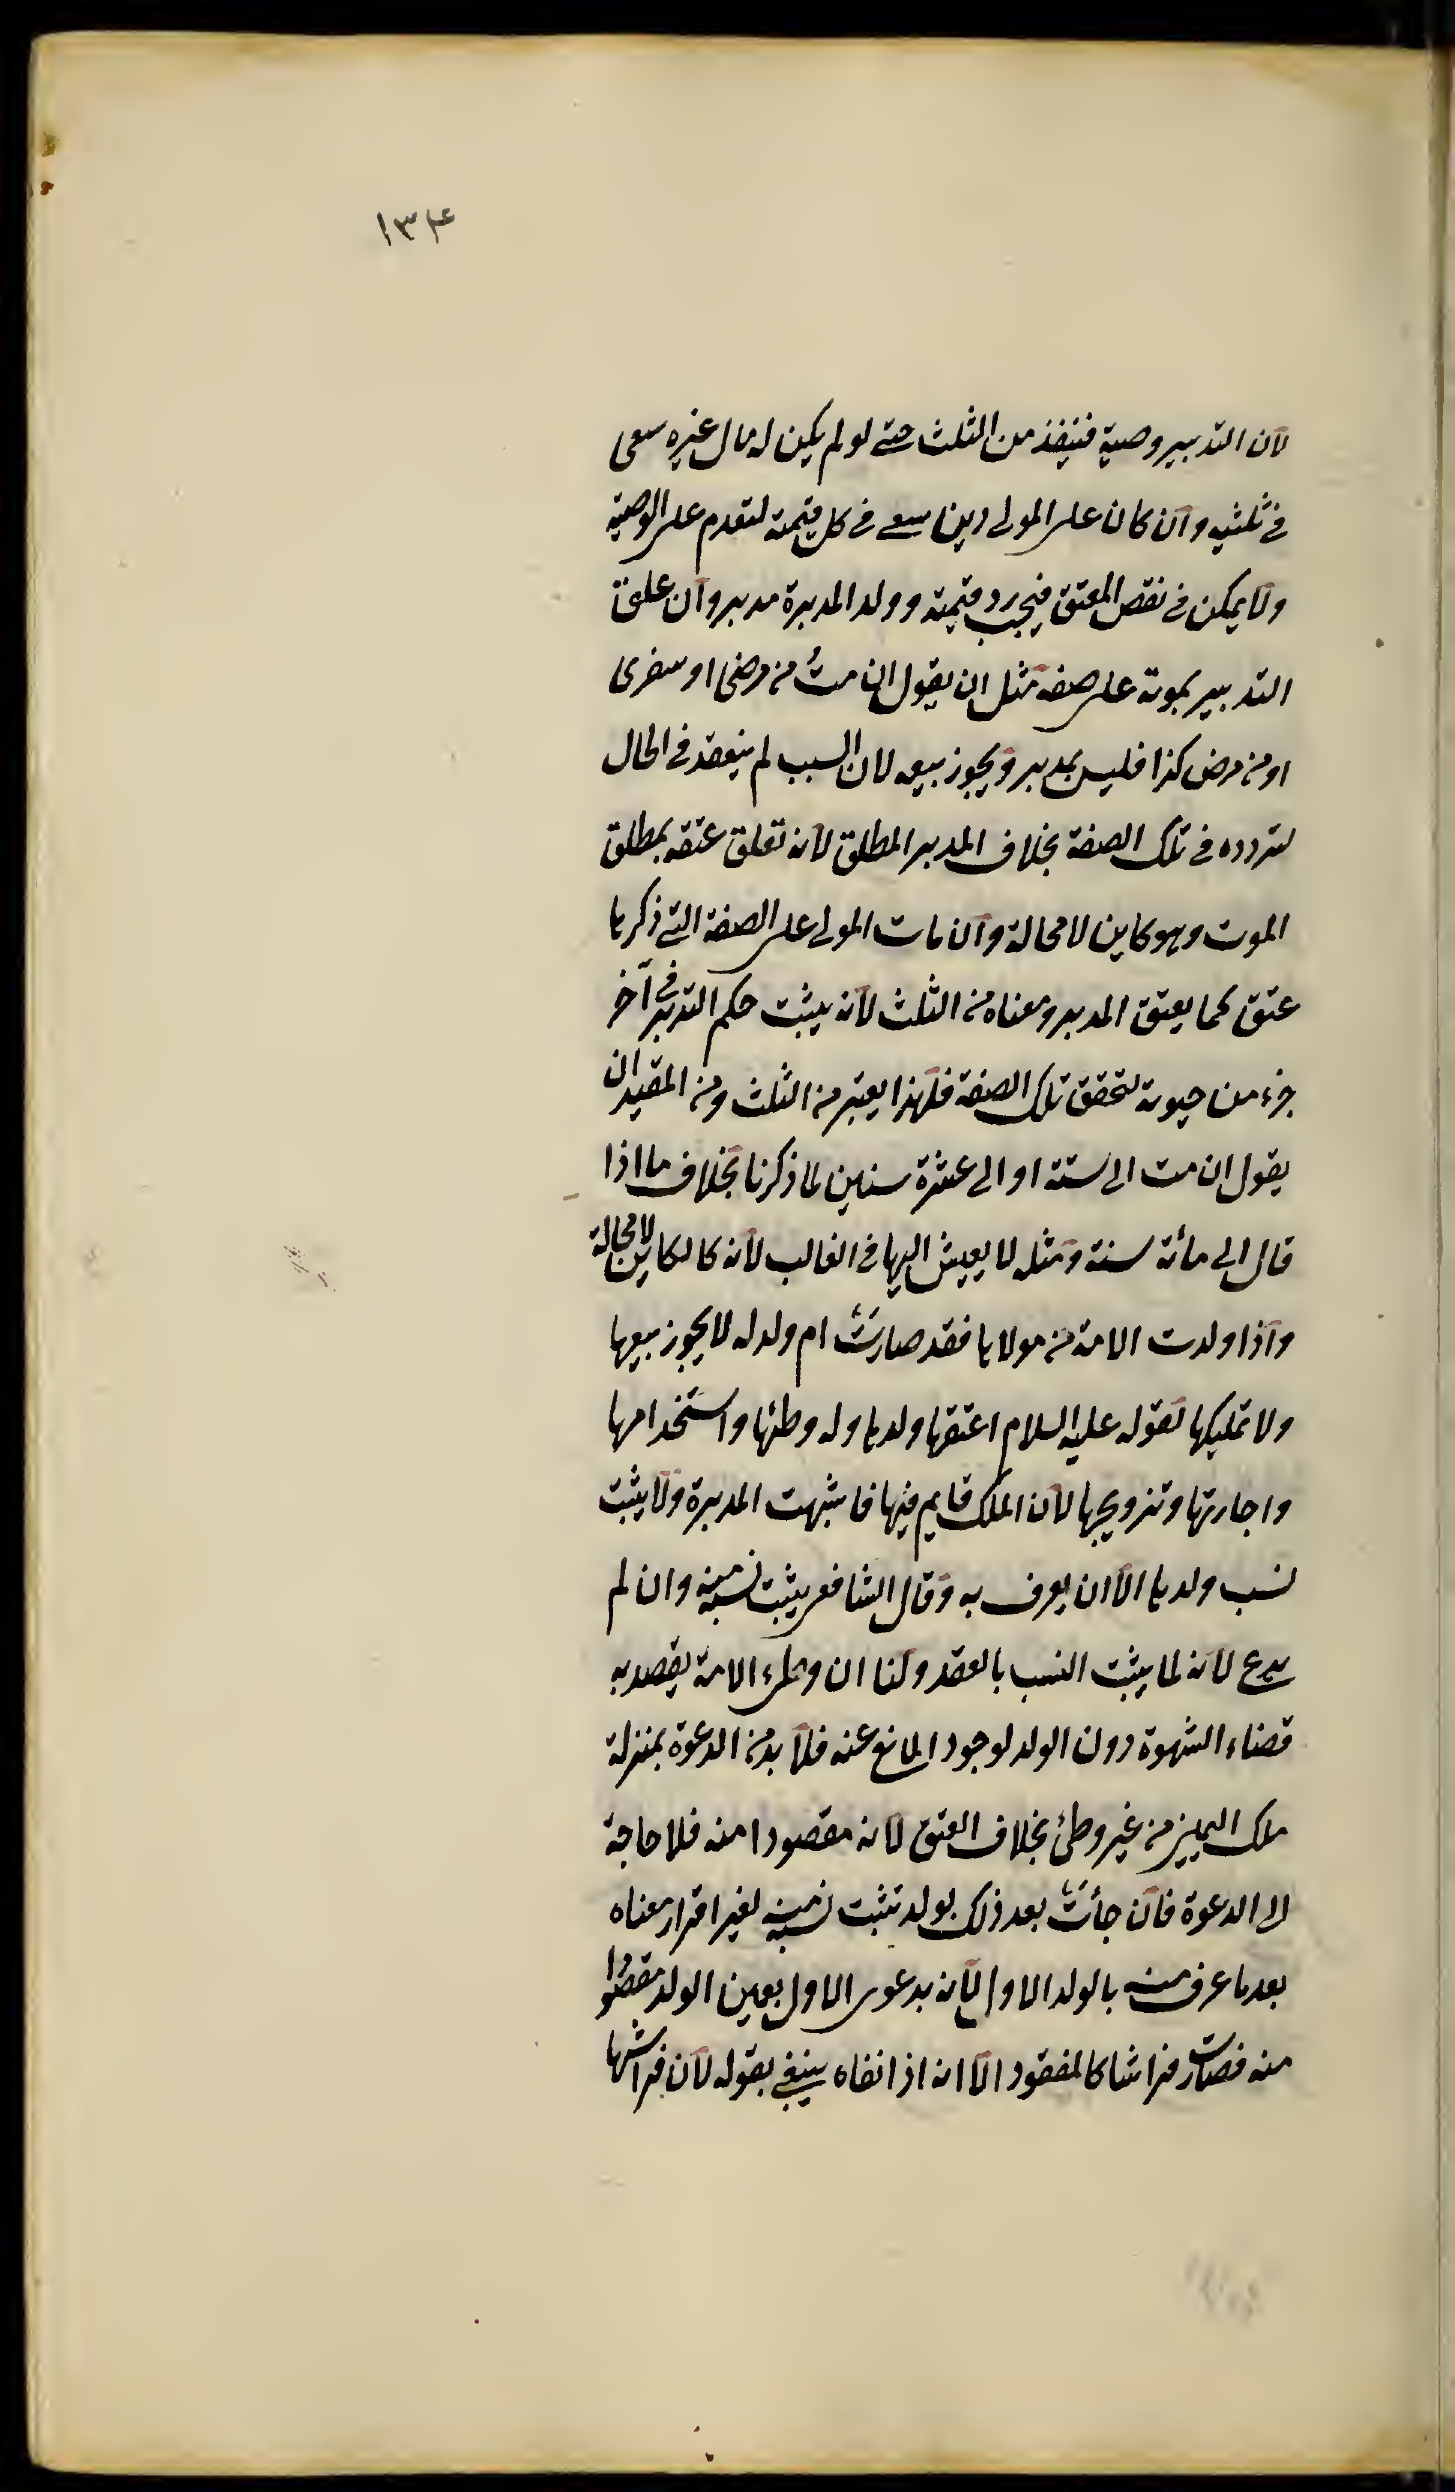 ١٣۴
لان التدبير وصية فينفذ من الثلث حتى لو لم يكن له مال غيره سعى
فى ثلثيه وان كان على المولى دين سعى فى كل قيمته لتقدم على الوصية
ولا يمكن فى نقض العتق فيجب رد قيمته وولد المدبرة مدبر وان علق
التدبير بموته على صفة مثل ان يقول ان متُ من مرضى او سفرى
او من مرض كذا فليس بمدبر ويجوز بيعه لان السبب لم ينعقد فى الحال
لتردده فى تلك الصفة بخلاف المدبر المطلق لانه تعلق عتقه بمطلق
الموت وهو كاين لا محالة وان مات المولى على الصفة التى ذكرها
عتق كما يعتق المدبر ومعناه من الثلث لانه يثبت حكم التدبير فى آخر
جزء من حيوته لتحقق تلك الصفة فلهذا يعتبر من الثلث ومن المقيد ان
يقول ان مت الى ستة او الى عشرة سنين لما ذكرنا بخلاف ما اذا
قال الى مائة سنة ومثله لا يعيش اليها فى الغالب لانه كالكاين لا محالة
واذا ولدت الامة من مولاها فقد صارت ام ولد له لا يجوز بيعها
ولا تمليكها لقوله عليه السلام اعتقها ولدها وله وطئها واستخدامها
واجارتها وتزويجها لان الملك قايم فيها فاشبهت المدبرة ولا يثبت
نسب ولدها الا ان يعرف به وقال الشافعى يثبت نسبه منه وان لم
يدع لانه لما يثبت النسب بالعقد ولنا ان وطى الامة يقصد به
قضاء الشهوة دون الولد لوجود المانع عنه فلا بد من الدعوة بمنزلة
ملك اليمين من غير وطئ بخلاف العتق لانه مقصودا منه فلا حاجة
الى الدعوة فان جأت بعد ذلك بولد تثبت نسبه منه لغير اقرار معناه
بعد ما عرف منه بالولد الاول لانه بدعوى الاول بعين الولد مقصودا
منه فصارت فراشا كالمفقود الا انه اذا نفاه ينتفى بقوله لان فراشها